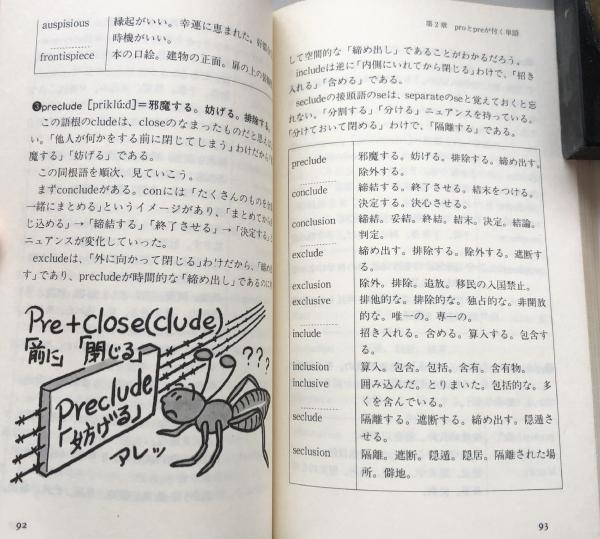 auspisious
縁起がいい。幸運に恵まれた。
時機がいい。
frontispiece
本の口絵。建物の正面。扉の上の
❸preclude [priklúːd]＝邪魔する。妨げる。排除する。
この語根のcludeは、closeのなまったものだと思え
い。「他人が何かをする前に閉じてしまう」わけだから
魔する」「妨げる」である。
この同根語を順次、見ていこう。
まずconcludeがある。conには「たくさんのものを
一緒にまとめる」というイメージがあり、「まとめてから
じ込める」→「締結する」「終了させる」→「決定する」と
ニュアンスが変化していった。
excludeは、「外に向かって閉じる」わけだから、「締め
す」であり、precludeが時間的な「締め出し」であるのに
Pre+close(clude)
「前に」「閉じる」
Preclude
「妨げる」
アレッ
???
92
第2章 proとpreが付く単語
して空間的な「締め出し」であることがわかるだろう。
includeは逆に「内側にいれてから閉じる」わけで、「招き
入れる」「含める」である。
secludeの接頭語のseは、separateのseと覚えておくと忘
れない。「分割する」「分ける」ニュアンスを持っている。
「分けておいて閉める」わけで、「隔離する」である。
preclude
邪魔する。妨げる。排除する。締め出す。
除外する。
conclude
締結する。終了させる。結末をつける。
決定する。決心させる。
conclusion
締結。妥結。終結。結末。決定。結論。
判定。
exclude
締め出す。排除する。除外する。遮断す
る。
exclusion
除外。排除。追放。移民の入国禁止。
exclusive
排他的な。排除的な。独占的な。非開放
的な。唯一の。専一の。
include
招き入れる。含める。算入する。包含す
る。
inclusion
算入。包含。包括。含有。含有物。
inclusive
囲み込んだ。とりまいた。包括的な。多
くを含んでいる。
seclude
隔離する。遮断する。締め出す。隠遁さ
せる。
seclusion
隔離。遮断。隠遁。隠居。隔離された場
所。僻地。
93